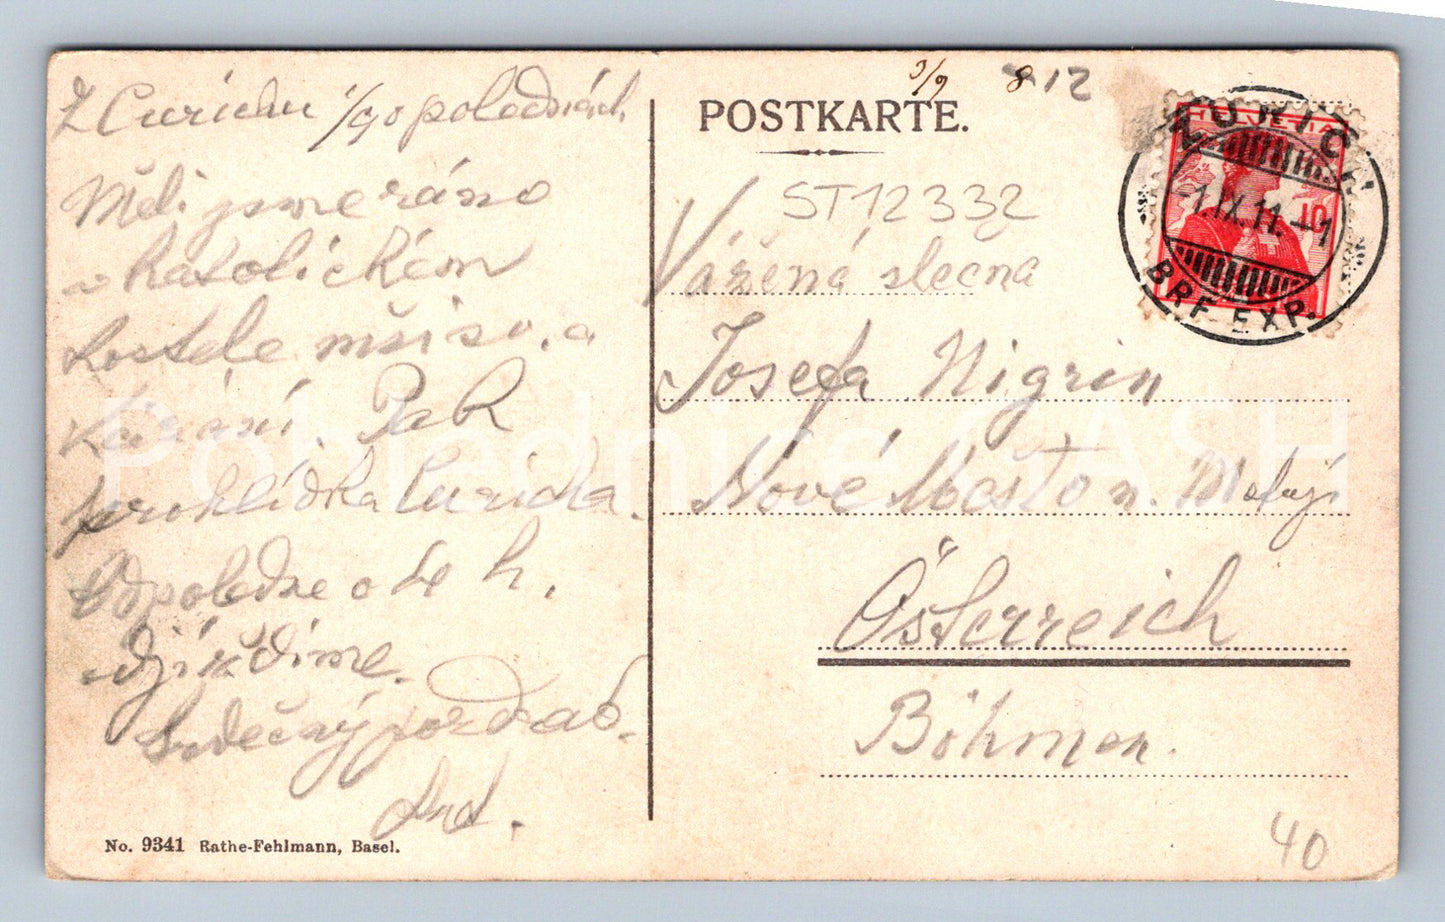 Z Curichu 1/9 o polednách
Měli jsme ráno
v katolickém
kostele mši sv. a
kázání. Pak
prohlídka Curicha.
Odpoledne o 4 h.
odjíždíme.
Srdečný pozdrav.
No. 9341 Rathe-Fehlmann, Basel.
3/9 8 12
POSTKARTE.
ST12332
Vážená slečna
Josefa Nigrin
Nové Město n. Metují
Österreich
Böhmen.
40
HELVETIA
10
ZÜRICH
-1.IX.11.-1
BRF. EXP.
Pohlednice GASH